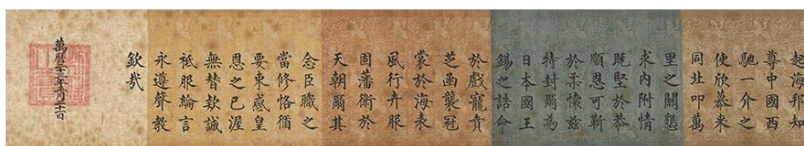 起海邦知
尊中國西
馳一介之
使欣慕來
同北叩萬
里之關懇
求內附情
既堅於恭
順恩可靳
於柔懷茲
特封爾為
日本國王
錫之誥命
於戲寵賁
芝函襲冠
裳於海表
風行卉服
固藩衛於
天朝爾其
念臣職之
當修恪循
要束感皇
恩之已渥
無替款誠
祗服綸言
永遵聲教
欽哉
萬曆二十三年正月二十一日